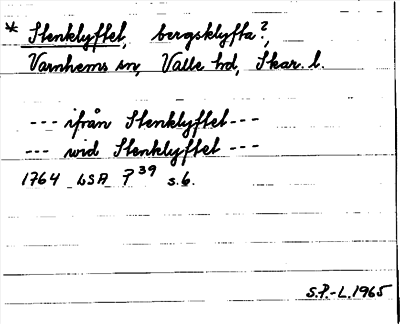 * Stenklyftet, bergsklyfta?,
Varnhems sn, Valle hd, Skar. l.
--- ifrån Stenklyftet ---
--- wid Stenklyftet ---
1764 LSA P 39 s.6.
S.P.-L. 1965